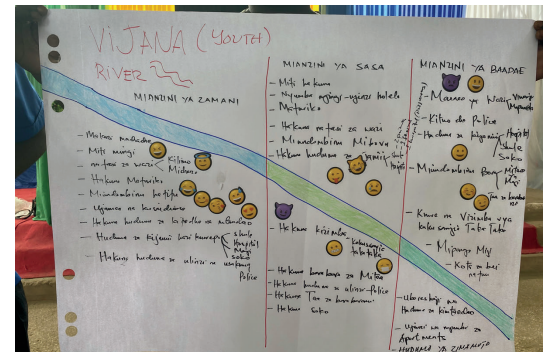 VIJANA (YOUTH)
RIVER
MIANZINI YA ZAMANI
- Makazi machache
- Miti mingi
- nafasi ya wazi Kilimo Michezo
- Hakuna Matariko
- Miundombinu hafifu
- Ujamaa na kusaidiana
- Hakuna huduma za kifedha na mitandao
- Huduma za kijamii
shule
Hospital
Maji
soko
- Hakuna huduma za ulinzi na usalama
Police
MIANZINI YA SASA
- Miti hakuna
- Nyumba nyingi - ujenzi holela
- Mafuriko
- Hakuna nafasi za wazi
- Miundombinu Mibovu
- Hakuna huduma za jamii
- Hakuna kizimba
- kukusanyia
takataka
- Hakuna
- Hakuna huduma za ulinzi - Police
- Hakuna Taa za barabarani
- Hakuna soko
MIANZINI YA BAADAE
- Maeneo ya Wazi
- Kituo cha Police
- Huduma za Kijamii
Hospital
Shule
Soko
- Miundombinu Bora
Taa za barabarani
- Kuwe na Vizimba vya
kukusanyia Taka Taka
- Mipango Miji
- Uboreshaji wa
Huduma za kimtandao
- Ujenzi wa nyumba za
Apartments
- HUDUMA YA ZIMAMOTO